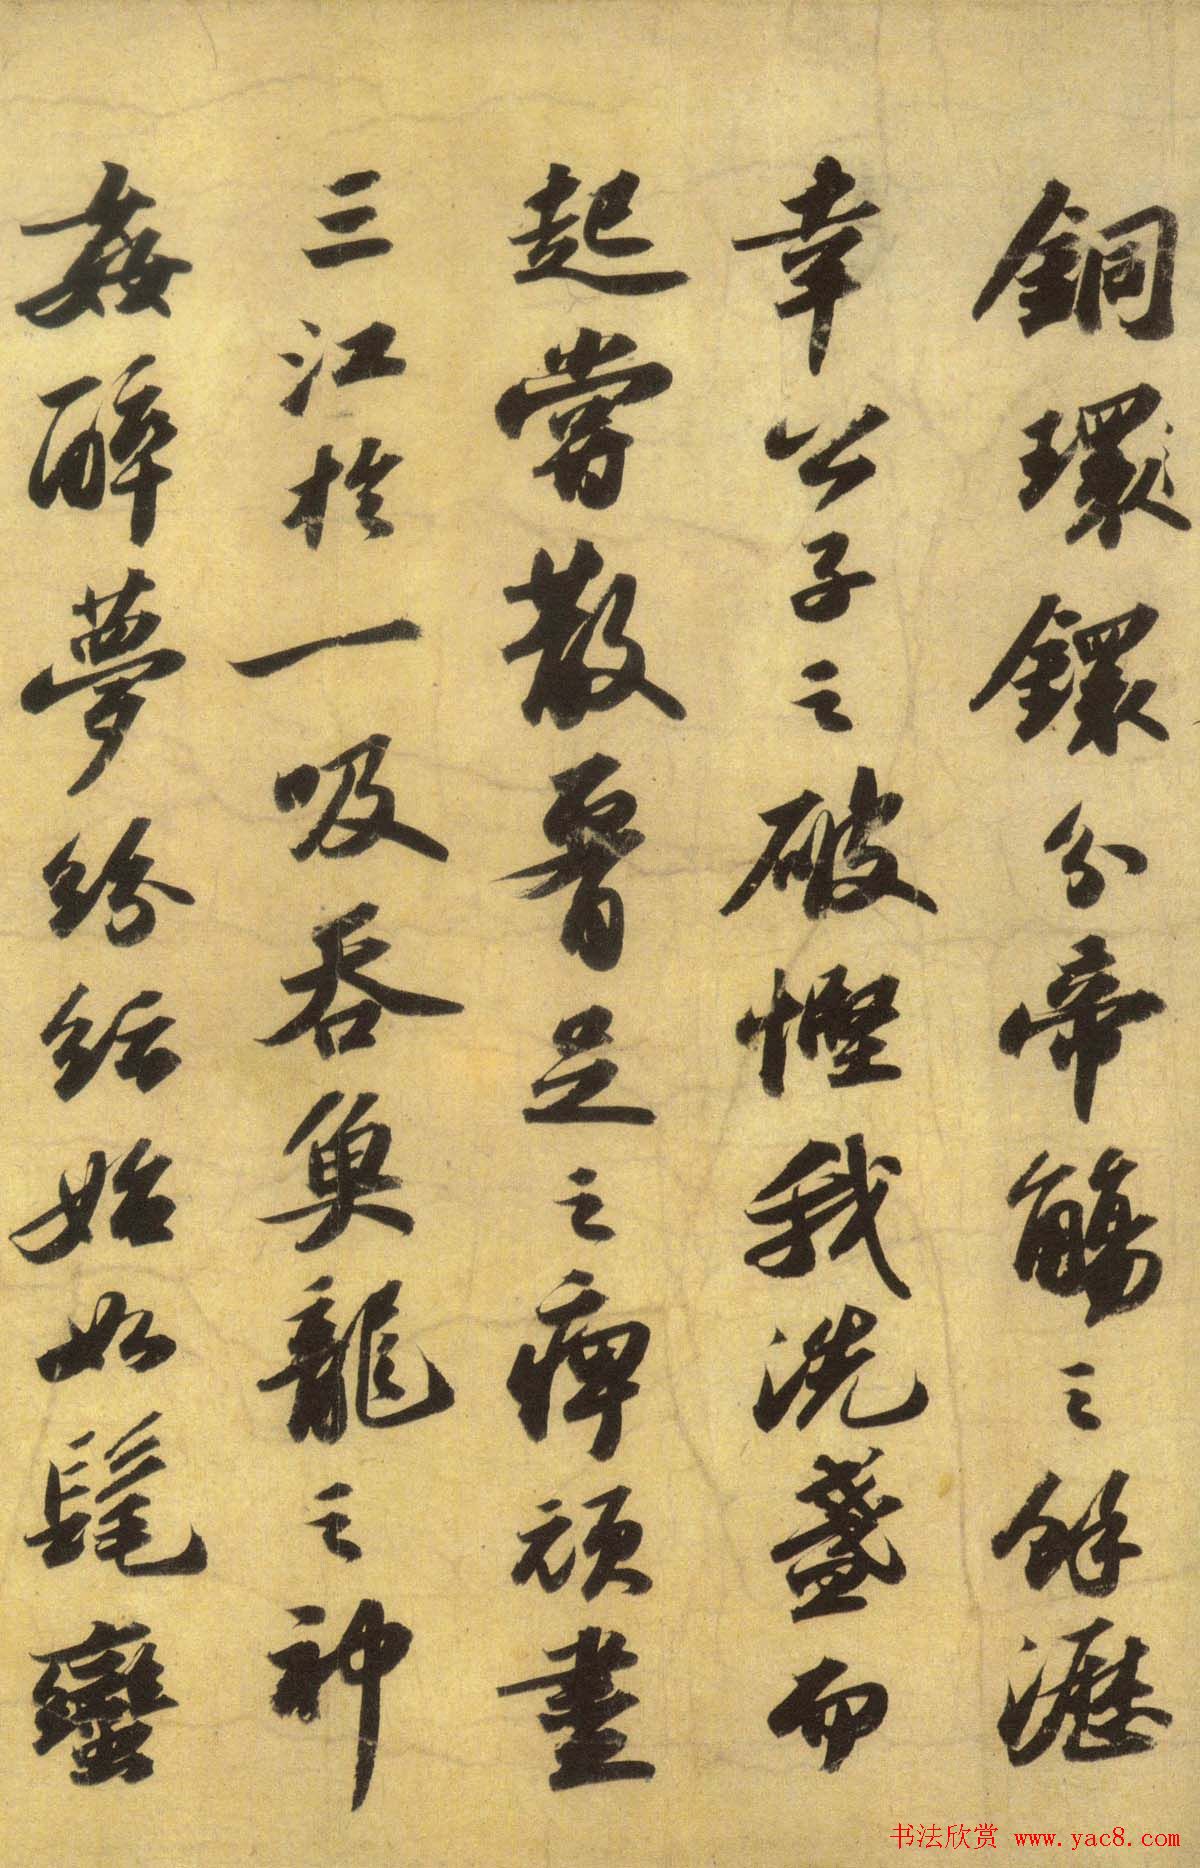 銅環鐶分帝觴之餘瀝
幸公子之破慳我洗盞而
起嘗散腰足之痺頑盡
三江於一吸吞魚龍之神
姦醉夢紛紜始如髦蠻
书法欣赏 www.yac8.com